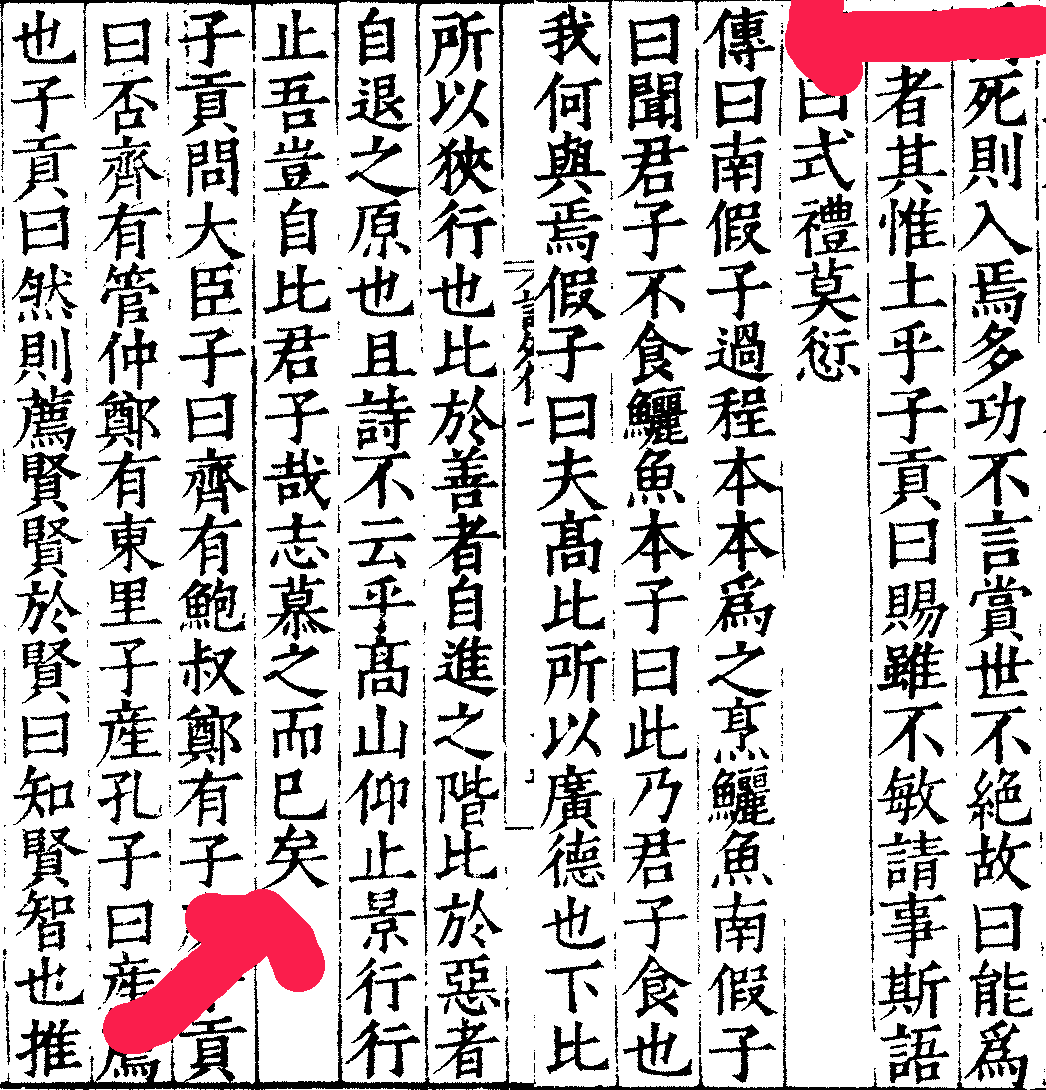 死則入焉多功不言賞世不絶故曰能爲
者其惟土乎子貢曰賜雖不敏請事斯語
曰式禮莫愆
傳曰南假子過程本本爲之烹鱺魚南假子
曰聞君子不食鱺魚本子曰此乃君子食也
我何與焉假子曰夫髙比所以廣德也下比
所以狹行也比於善者自進之階比於惡者
自退之原也且詩不云乎髙山仰止景行行
止吾豈自比君子哉志慕之而已矣
子貢問大臣子曰齊有鮑叔鄭有子貢
曰否齊有管仲鄭有東里子産孔子曰産薦
也子貢曰然則薦賢賢於賢曰知賢智也推